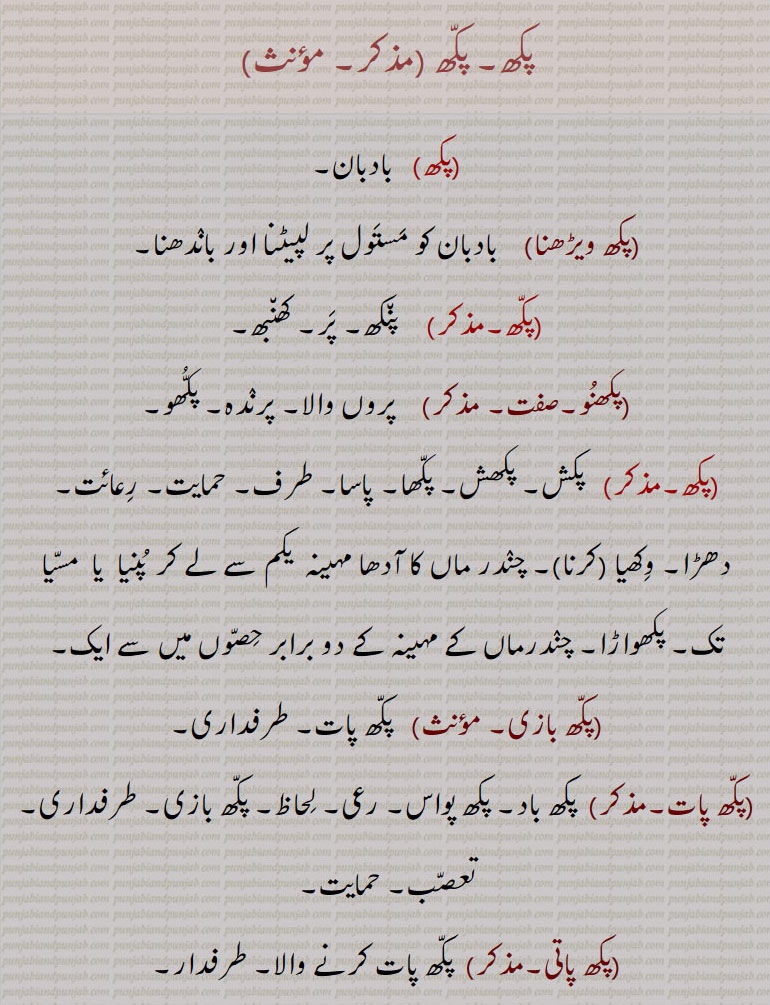 پکھ۔ پکّھ (مذکر۔ مؤنث)
(پکھ) بادبان۔
(پکھ ویڑھنا) بادبان کو مَستَول پر لپیٹنا اور بان٘دھنا۔
(پکّھ۔مذکر) پنّکھ۔ پَر۔ کھنّبھ۔
(پکھنُو۔صفت۔ مذکر) پروں والا۔ پرن٘دہ۔ پکُّھو۔
(پکھ۔مذکر) پکش۔ پکھش۔ پکّھا۔ پاسا۔ طرف۔ حمایت۔ رِعائت۔
دھڑا۔ وِکھیا (کرنا)۔ چن٘در ماں کا آدھا مہینہ یکم سے لے کر پُنِیا یا مسّیا
تک۔ پکھواڑا۔ چن٘درماں کے مہینہ کے دو برابر حِصّوں میں سے ایک۔
(پکّھ بازی۔ مؤنث) پکّھ پات۔ طرفداری۔
(پکّھ پات۔مذکر) پکھ باد۔ پکھ پواس۔ رعی۔ لِحاظ۔ پکّھ بازی۔ طرفداری۔
تعصّب۔ حمایت۔
(پکھ پاتی۔مذکر) پکّھ پات کرنے والا۔ طرفدار۔